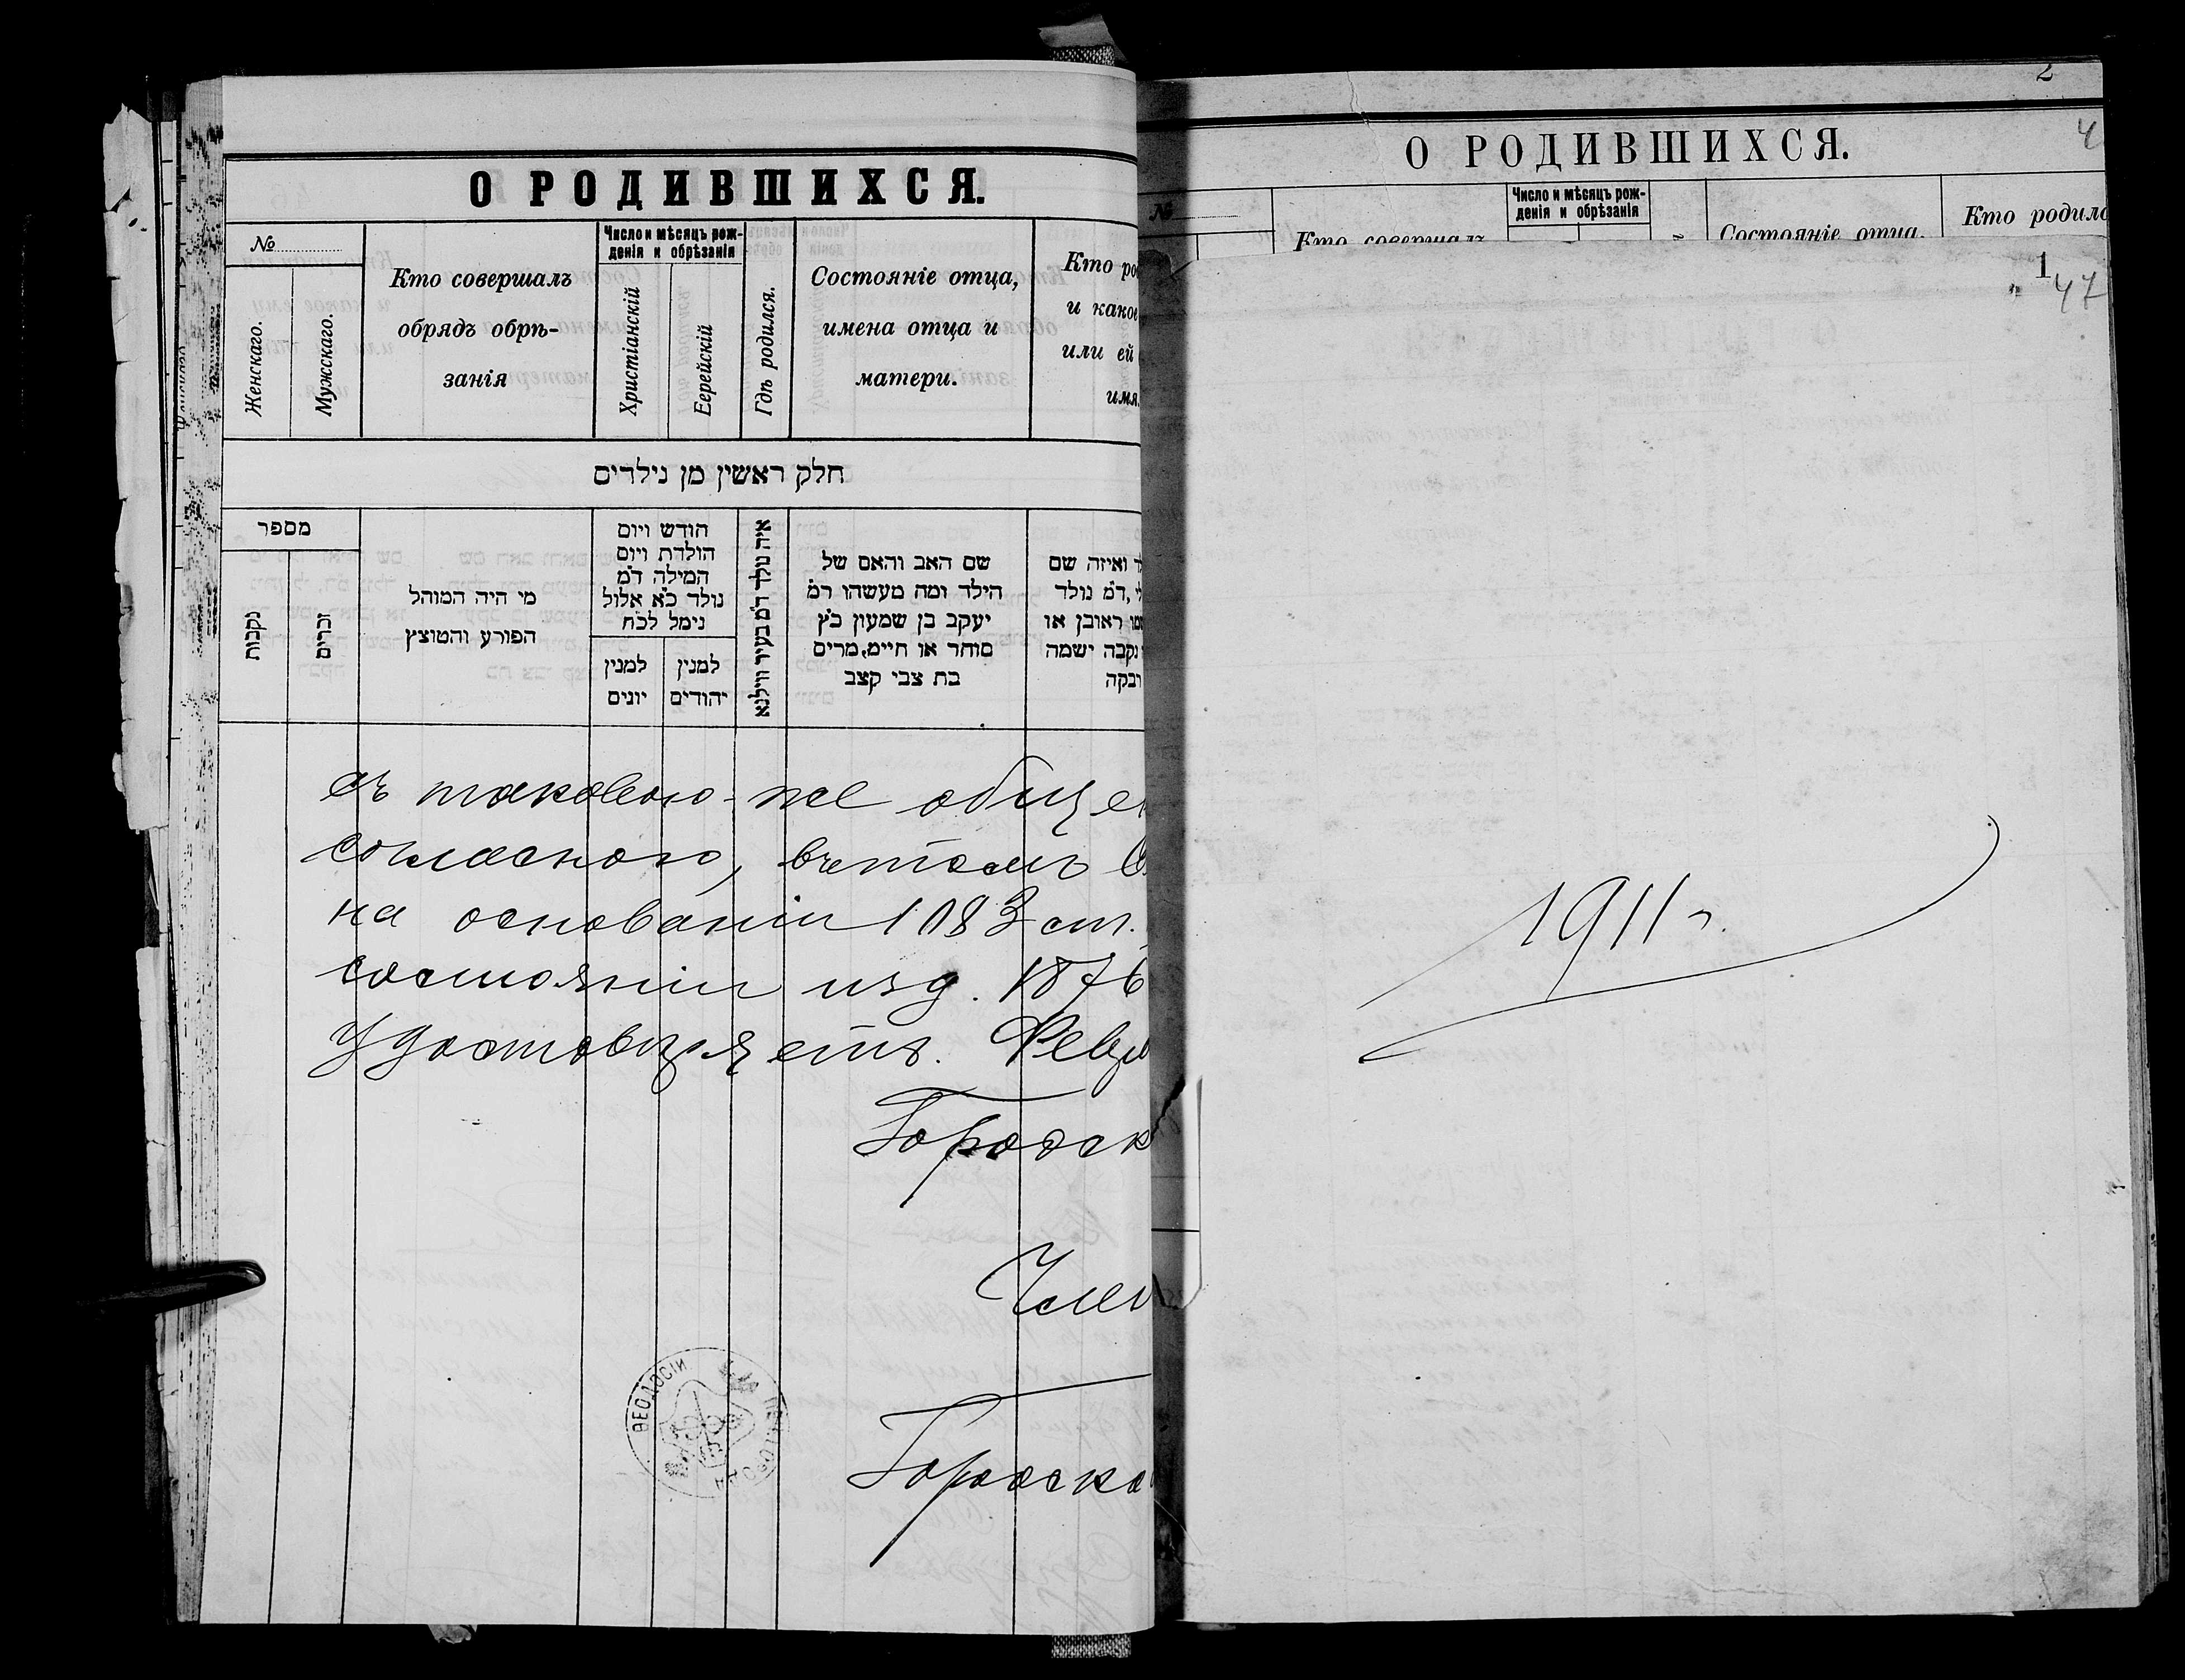 О РОДИВШИХСЯ.
№
Женскаго.
Мужскаго.
Кто совершалъ
обрядъ обрѣ-
занія
Число и мѣсяцъ рож-
денія и обрѣзанія
Христіанскій
Еерейскій
Гдѣ родился.
Состояніе отца,
имена отца и
матери.
Кто ро
и какое
или ей
имя.
חלק ראשין מן נילדים
מספר
נקבות
זכרים
מי היה המוהל
הפורע והטוצץ
חודש ויום
הולדת ויום
המילה דמ
נולד כא אלול
נימל לכח
למנין
יונים
למנין
יהודים
איה נולד דמ בעיר ווילנא
שם האב והאם של
הילד ומה מעשהו דמ
יעקב בן שמעון כץ
סוחר או חיים, מרים
בת צבי קצב
ד ואיזה שם
לי, דמ נולד
שמו ראובן או
נקבה ישמה
רבקה
съ таковою-же общe
согласною, въ томъ
на основаніи 1083 ст.
состояніи изд. 1876
удостовѣряетъ. Февр
Городск
Член
Городско
ѲЕОДОСІИ
2
О РОДИВШИХСЯ.
4
№
Кто совершалъ
Число и мѣсяцъ рож-
денія и обрѣзанія
Состояніе отца,
Кто родилс
1
47
1911 г.